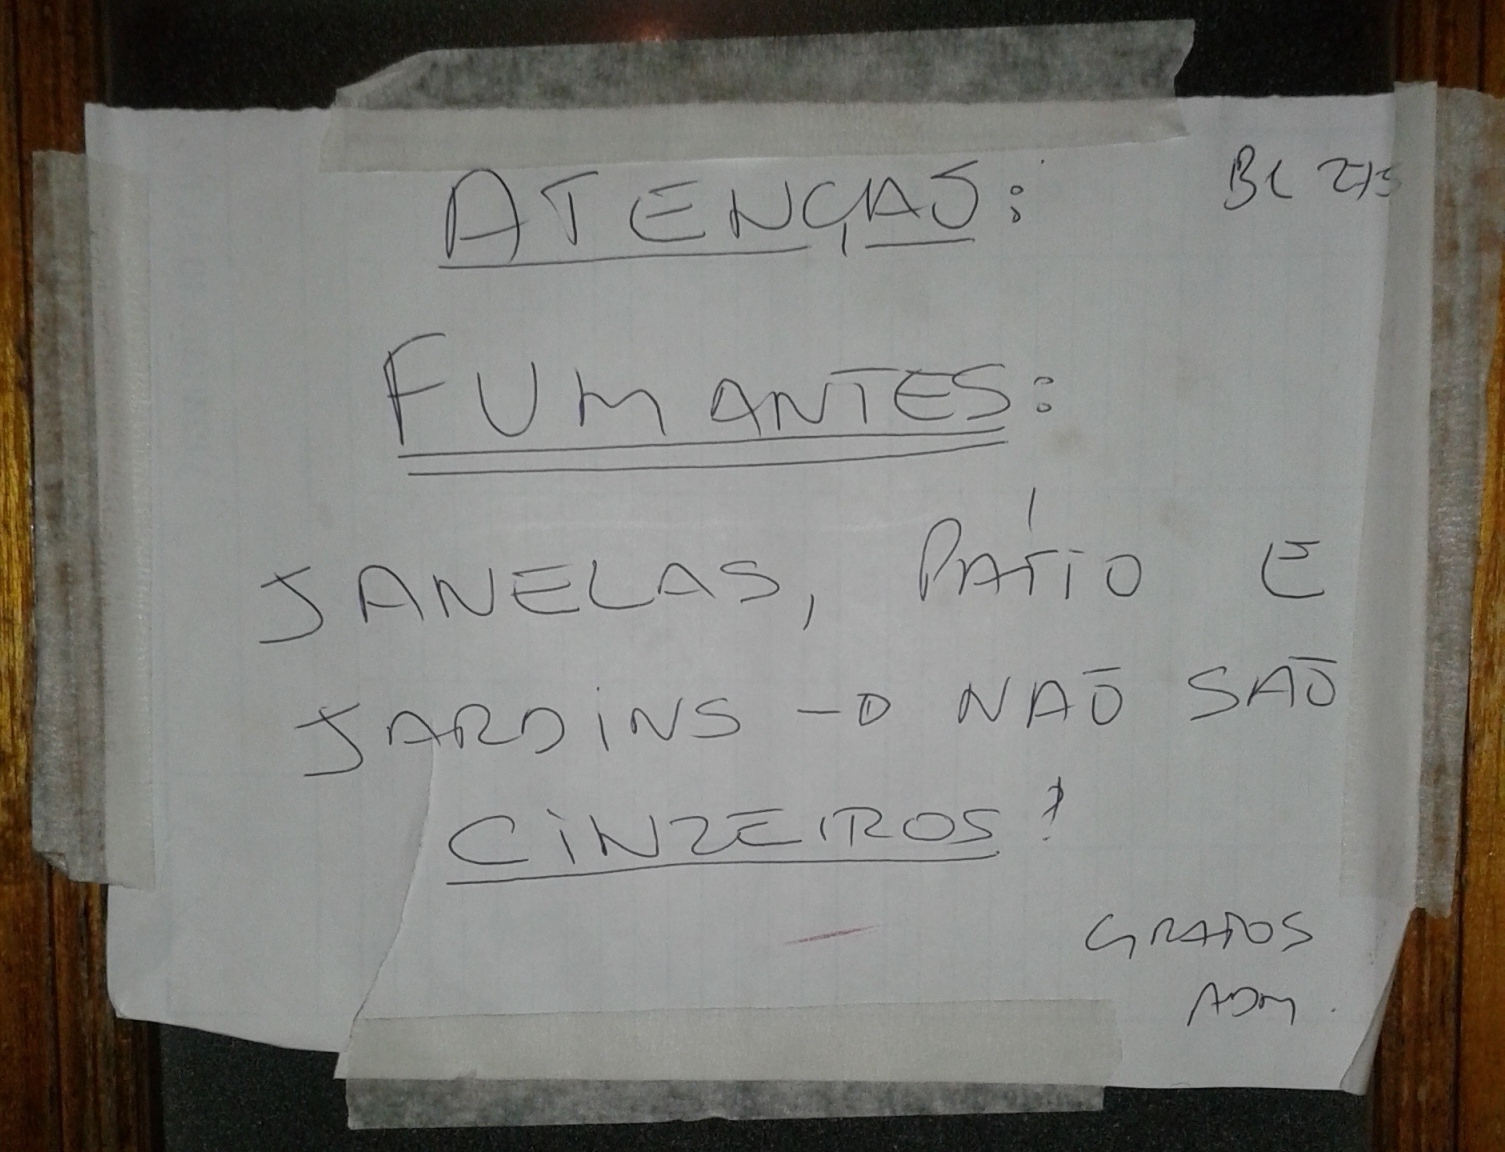 ATENÇAO:
FUMANTES:
JANELAS, PÁTIO E
JARDINS → NAŌ SAŌ
CINZEIROS!
GRATOS
ADM.